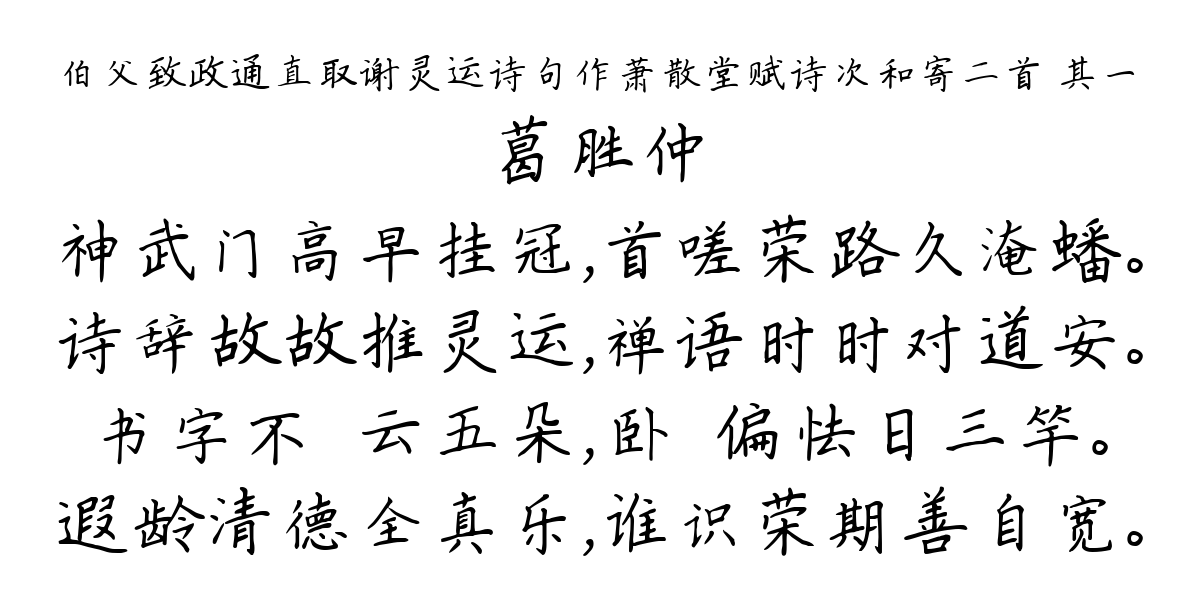 伯父致政通直取谢灵运诗句作萧散堂赋诗次和寄二首 其一
葛胜仲
神武门高早挂冠,首嗟荣路久淹蟠。
诗辞故故推灵运,禅语时时对道安。
书字不 云五朵,卧 偏怯日三竿。
遐龄清德全真乐,谁识荣期善自宽。